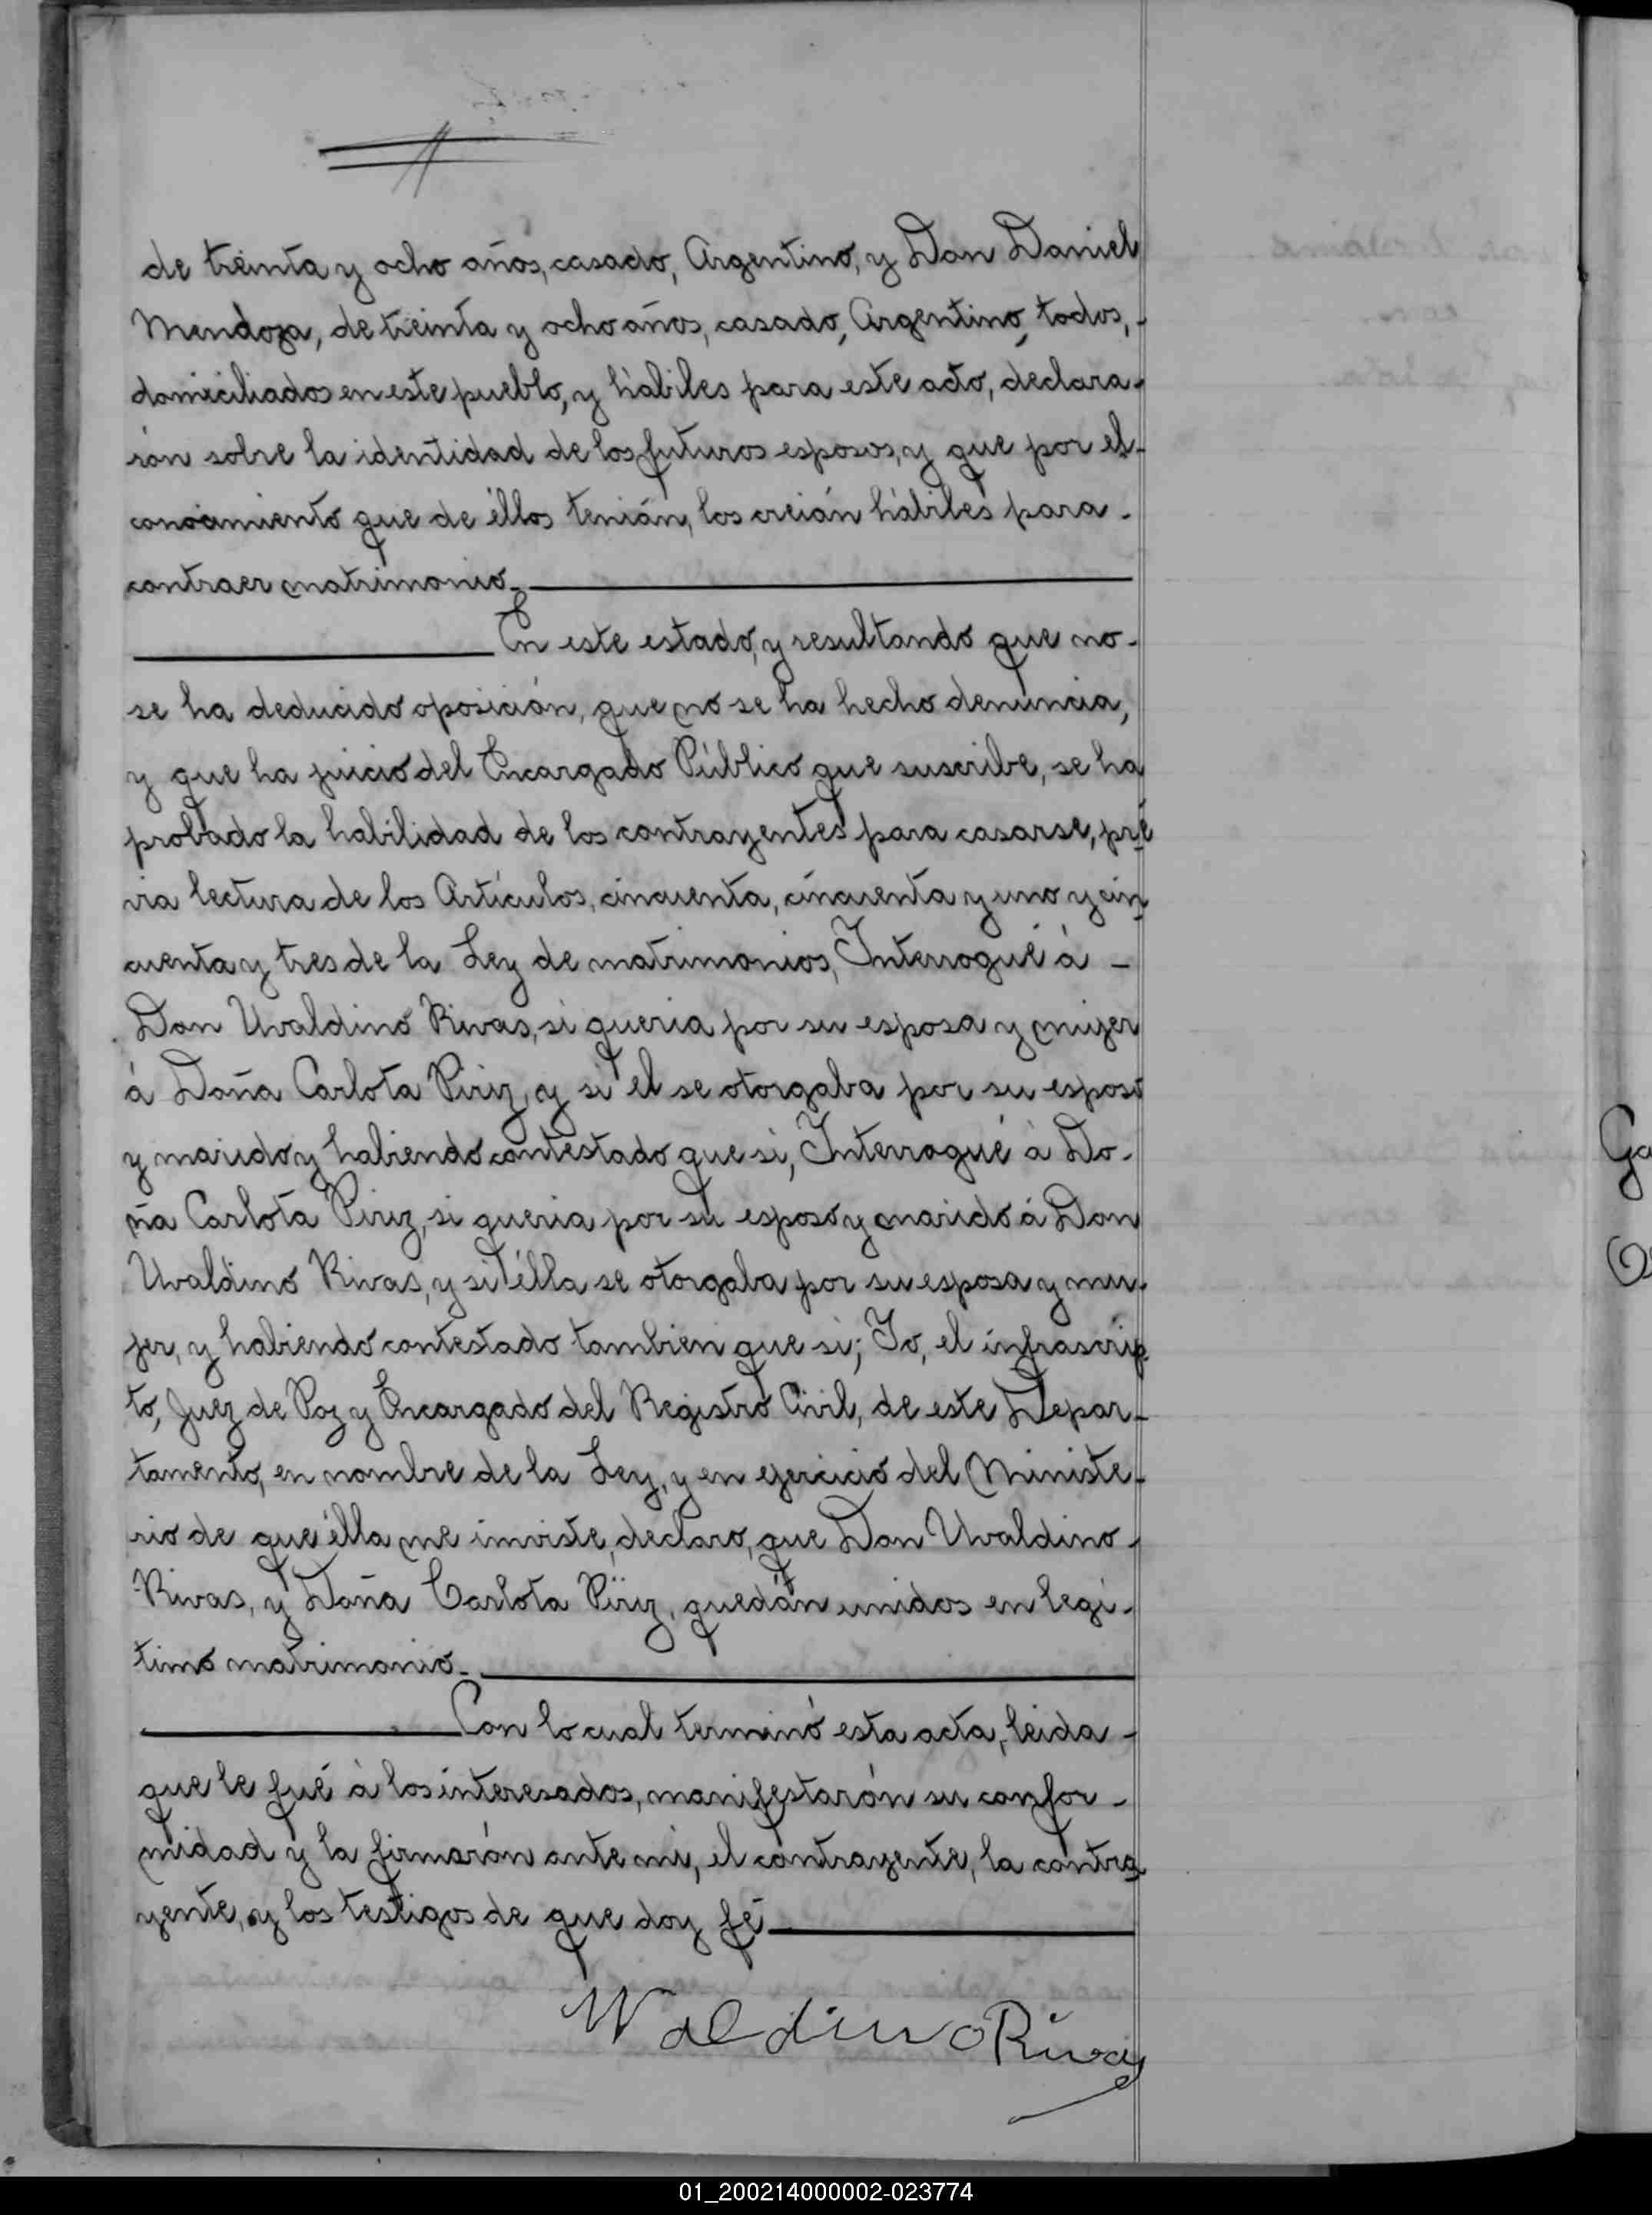 de treinta y ocho años, casado, Argentino, y Don Daniel
Mendoza, de treinta y ocho años, casado, Argentino, todos,-
domiciliados en este pueblo, y hábiles para este acto, declara-
rán sobre la identidad de los futuros esposos, y que por el-
conocimiento que de éllos tenián, los creián hábiles para-
contraer matrimonio.
En este estado, y resultando que no-
se ha deducido oposición, que no se ha hecho denuncia,
y que ha juicio del Encargado Público que suscribe, se ha
probado la habilidad de los contrayentes para casarse, pré
via lectura de los Artículos, cincuenta, cincuenta y uno y cin
cuenta y tres de la Ley de matrimonios, Interrogué á -
Don Uvaldino Rivas, si queria por su esposa y mujer
á Doña Carlota Piriz, y si él se otorgaba por su esposo
y marido y habiendo contestado que si, Interrogué á Do-
ña Carlota Piriz, si queria por su esposo y marido á Don
Uvaldino Rivas, y si élla se otorgaba por su esposa y mu-
jer, y habiendo contestado tambien que si; Yo, el infrascrip
to, Juez de Paz y Encargado del Registro Civil, de este Depar-
tamento, en nombre de la Ley, y en ejercicio del Ministe-
rio de que élla me inviste, declaro, que Don Uvaldino-
Rivas, y Doña Carlota Piriz, quedán unidos en legi-
timo matrimonio.
Con lo cual terminó esta acta, leida-
que le fué á los interesados, manifestarón su confor-
midad y la firmarón ante mi, el contrayente, la contra
yente, y los testigos de que doy fé
Waldino Rivas
Ga
01_200214000002-023774